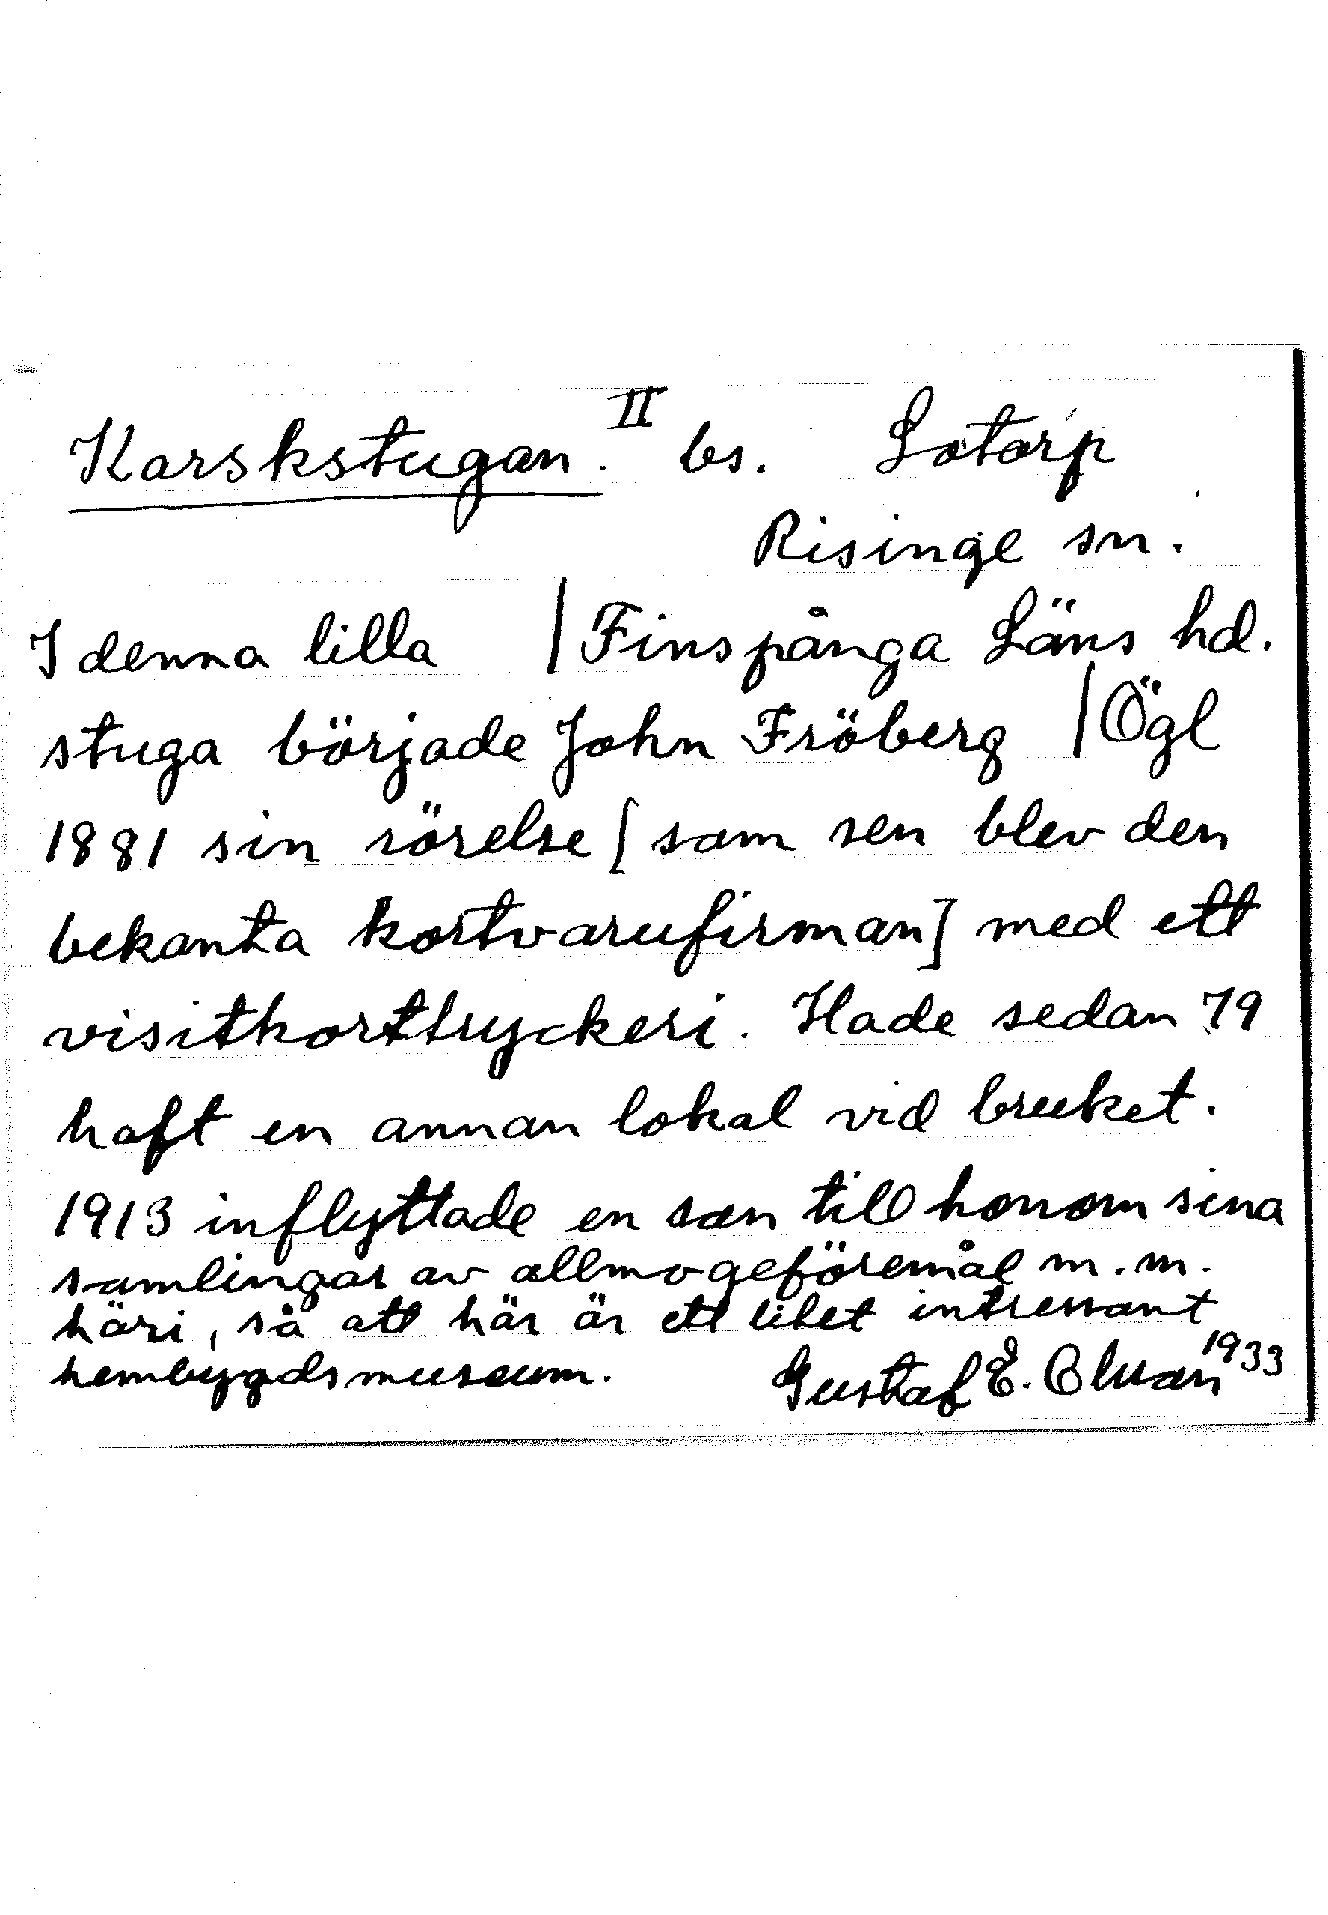 Karskstugan. II bs. Lotorp
Risinge sn.
I denna lilla | Finspånga Läns hd.
stuga började John Fröberg | Ögl
1881 sin rörelse [som sen blev den
bekanta kortvarufirman] med ett
visitkorttryckeri. Hade sedan 79
haft en annan lokal vid bruket.
1913 inflyttade en son till honom sina
samlingar av allmogeföremål m.m.
häri, så att här är ett litet intressant
hembygdsmuseum. Gustaf E. Olsson 1933